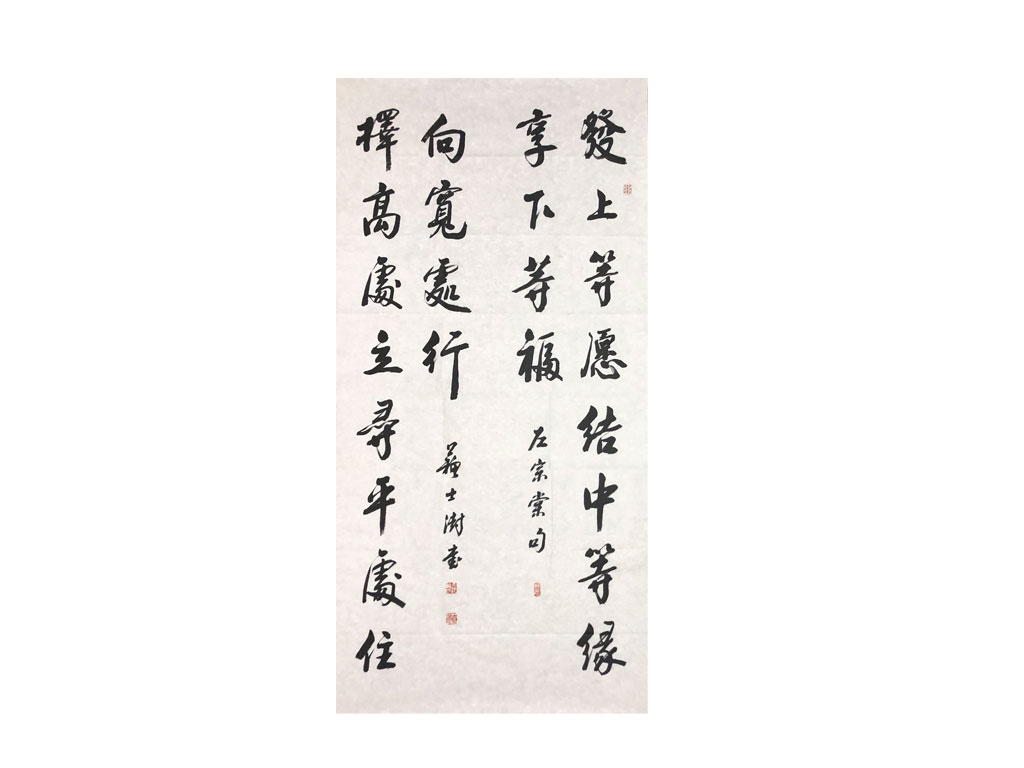 發上等愿結中等緣
享下等福
左宗棠句
擇高處立尋平處住
向寬處行
蘇士澍書